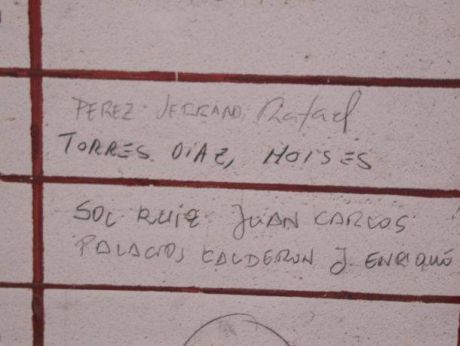 PEREZ SERRANO, Rafael
TORRES DIAZ, MOISES
SOL RUIZ JUAN CARLOS
PALACIOS CALDERON J. ENRIQUE